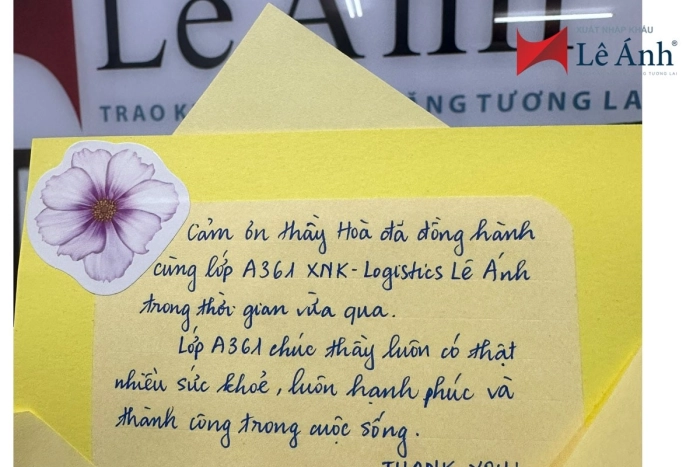 Lê Ánh
XUẤT NHẬP KHẨU
Lê Ánh®
TRAO K
ĂNG TƯƠNG LA
Cảm ơn thầy Hoà đã đồng hành
cùng lớp A361 XNK-Logistics Lê Ánh
trong thời gian vừa qua.
Lớp A361 chúc thầy luôn có thật
nhiều sức khoẻ, luôn hạnh phúc và
thành công trong cuộc sống.